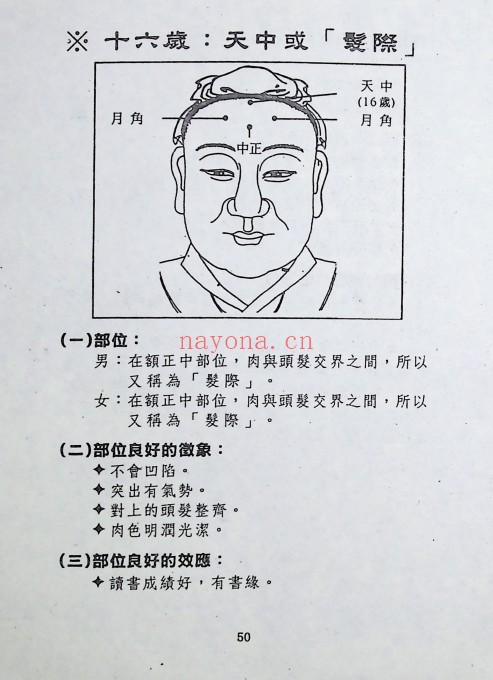 ※ 十六歲：天中或「髮際」
天中
(16歲)
月角
月角
中正
nayona.cn
(一)部位：
男：在額正中部位，肉與頭髮交界之間，所以
又稱為「髮際」。
女：在額正中部位，肉與頭髮交界之間，所以
又稱為「髮際」。
(二)部位良好的徵象：
✦不會凹陷。
✦突出有氣勢。
✦對上的頭髮整齊。
✦肉色明潤光潔。
(三)部位良好的效應：
✦讀書成績好，有書緣。
50